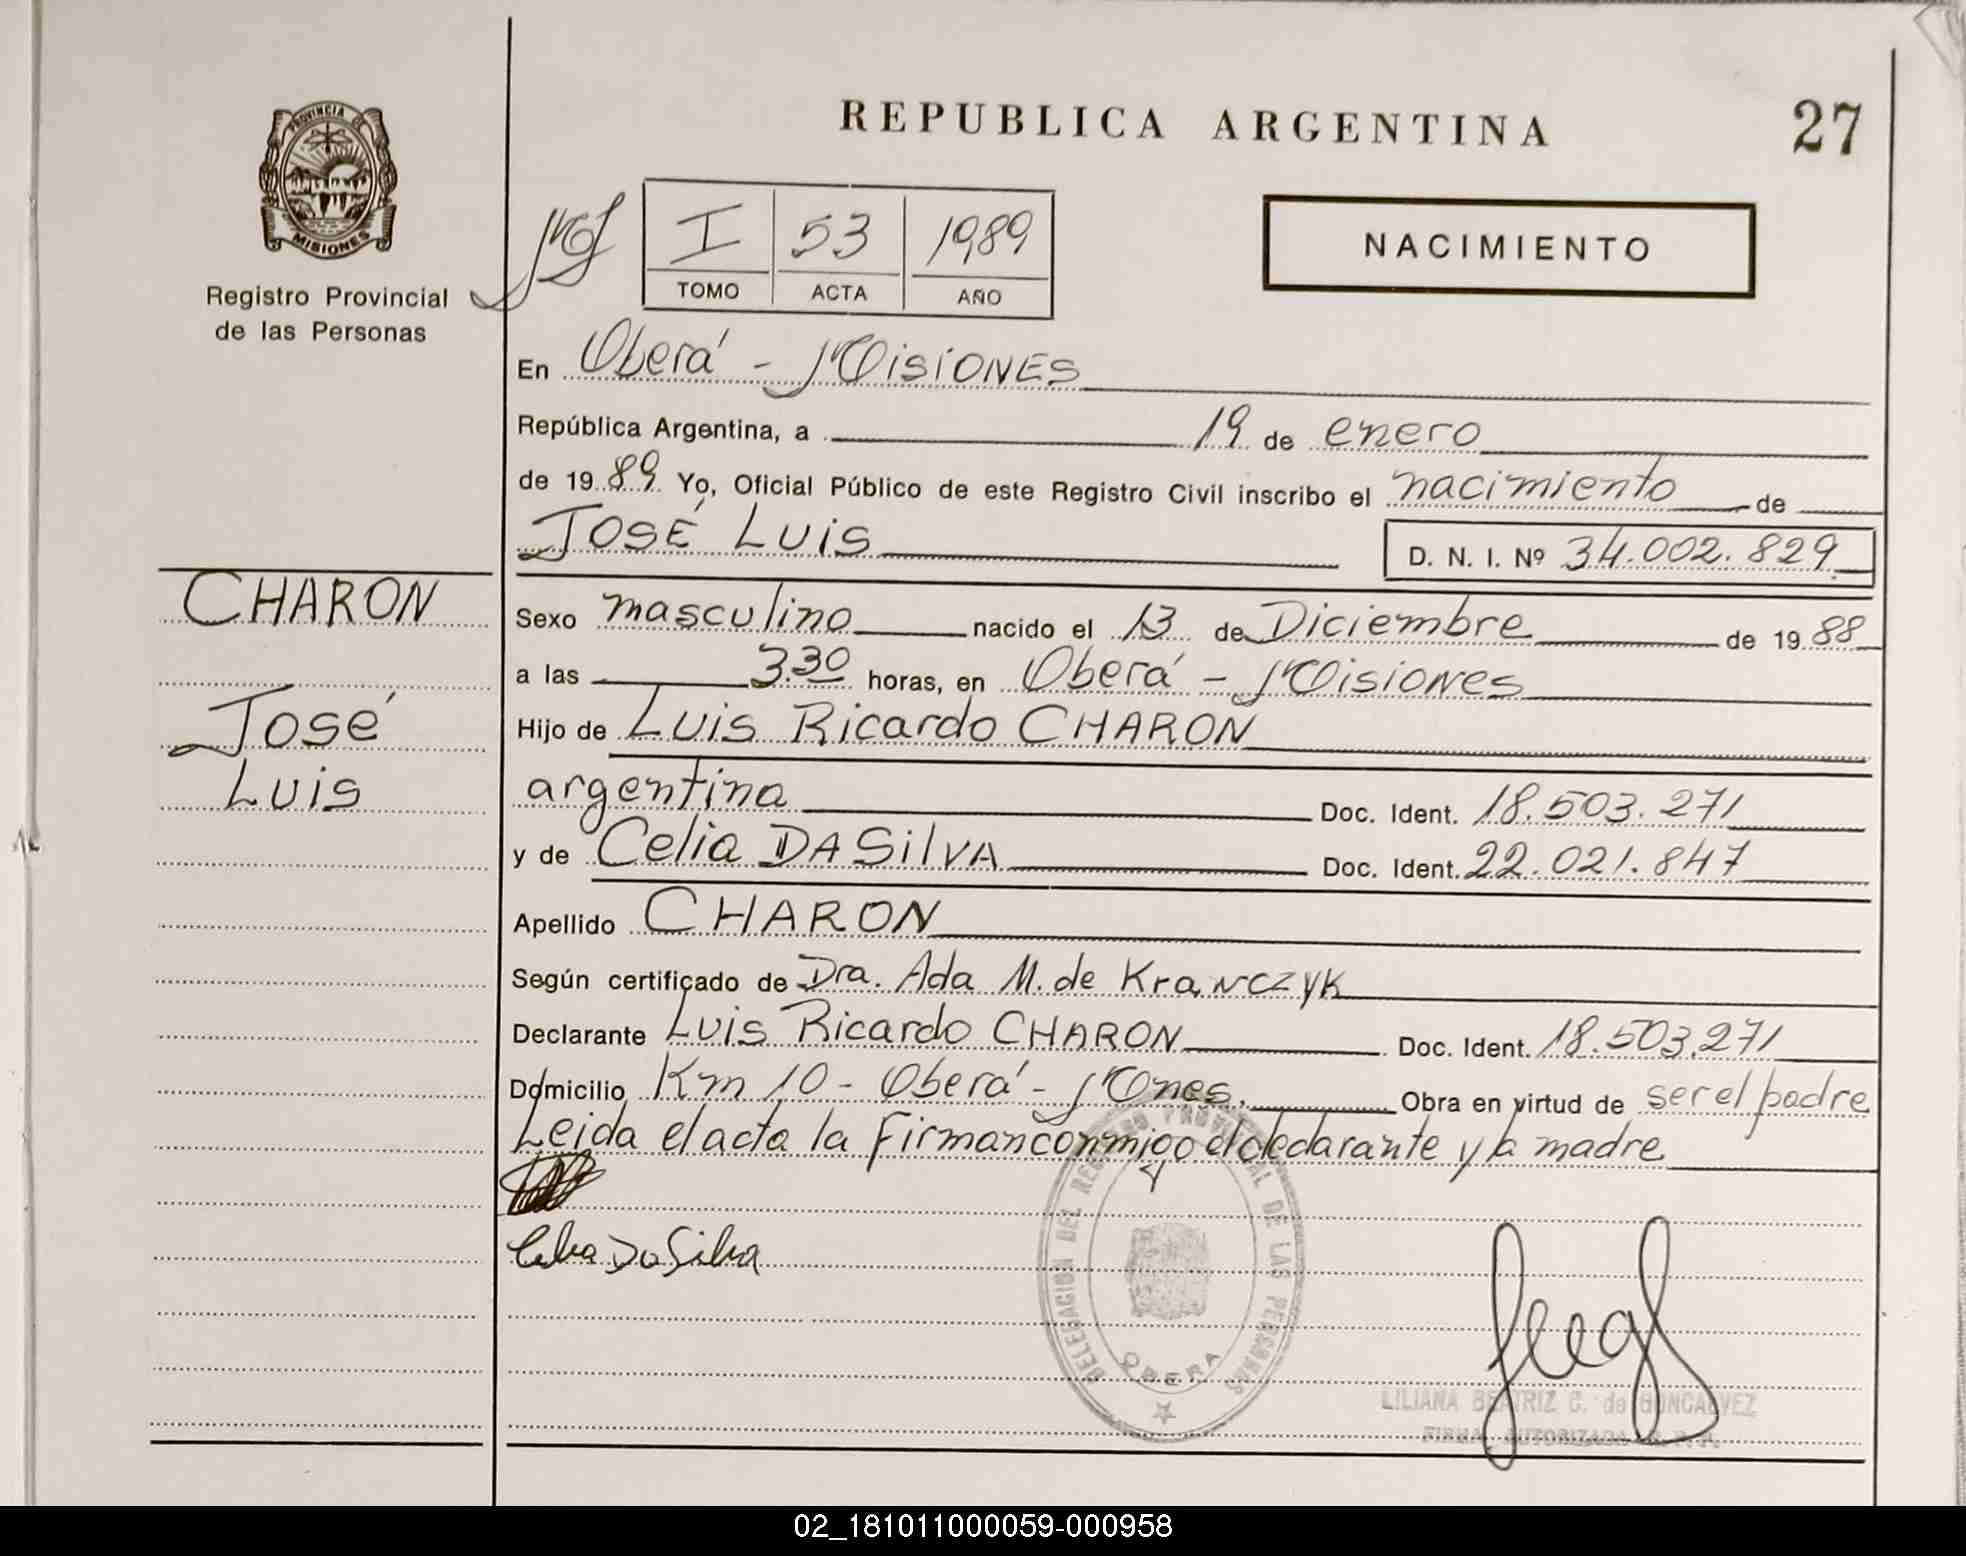 REPUBLICA ARGENTINA
27
PROVINCIA DE
MISIONES
Registro Provincial
de las Personas
I 53 1989
TOMO ACTA AÑO
NACIMIENTO
En Oberá - Misiones
República Argentina, a 19 de enero
de 1989 Yo, Oficial Público de este Registro Civil inscribo el nacimiento de
José Luis D. N. I. Nº 34.002.829
CHARON
José
Luis
Sexo masculino nacido el 13 de Diciembre de 1988
a las 3.30 horas, en Oberá - Misiones
Hijo de Luis Ricardo CHARON
argentina Doc. Ident. 18.503.271
y de Celia DA SilVA Doc. Ident. 22.021.847
Apellido CHARON
Según certificado de Dra. Ada M. de Krawczyk
Declarante Luis Ricardo CHARON Doc. Ident. 18.503.271
Domicilio Km 10 - Oberá - Mnes. Obra en virtud de ser el padre
Leida el acta la firman conmigo el declarante y la madre
Celia Da Silva
DELEGACION DEL REGISTRO PROVINCIAL DE LAS PERSONAS
OBERA
LILIANA BEATRIZ G. de GONCALVEZ
FIRMA AUTORIZADA
02_181011000059-000958